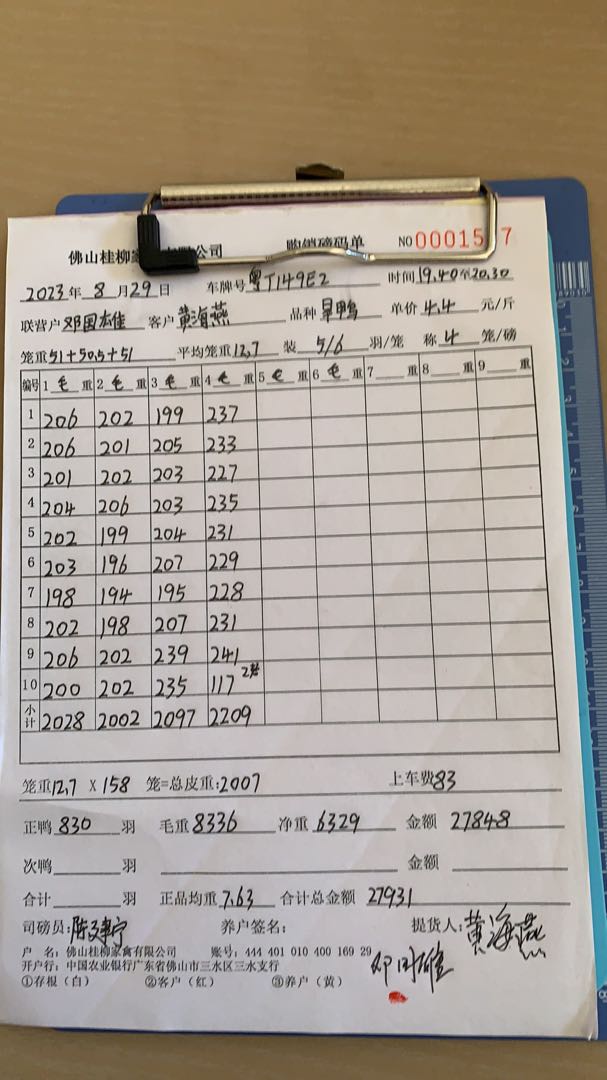 佛山桂柳家 有限公司 购销磅码单 NO 00015 7
2023年 8月29日 车牌号 粤T149E2 时间 19.40至20.30
联营户 邓国雄 客户 黄海燕 品种 旱鸭 单价 4.4 元/斤
笼重 51+50.5+51 平均笼重 12.7 装 5/6 羽/笼 称 4 笼/磅
编号 1 毛 重 2 毛 重 3 毛 重 4 毛 重 5 毛 重 6 毛 重 7 重 8 重 9 重
1 206 202 199 237
2 206 201 205 233
3 201 202 203 227
4 204 206 203 235
5 202 199 204 231
6 203 196 207 229
7 198 194 195 228
8 202 198 207 231
9 206 202 239 241
10 200 202 235 117 2笼
小计 2028 2002 2097 2209
笼重 12.7 X 158 笼=总皮重:2007 上车费 83
正鸭 830 羽 毛重 8336 净重 6329 金额 27848
次鸭 羽 金额
合计 羽 正品均重 7.63 合计总金额 27931
司磅员: 养户签名: 提货人: 黄海燕
户 名: 佛山桂柳家禽有限公司 账号: 444 401 010 400 169 29
开户行: 中国农业银行广东省佛山市三水区三水支行
邓国雄
①存根（白） ②客户（红） ③养户（黄）